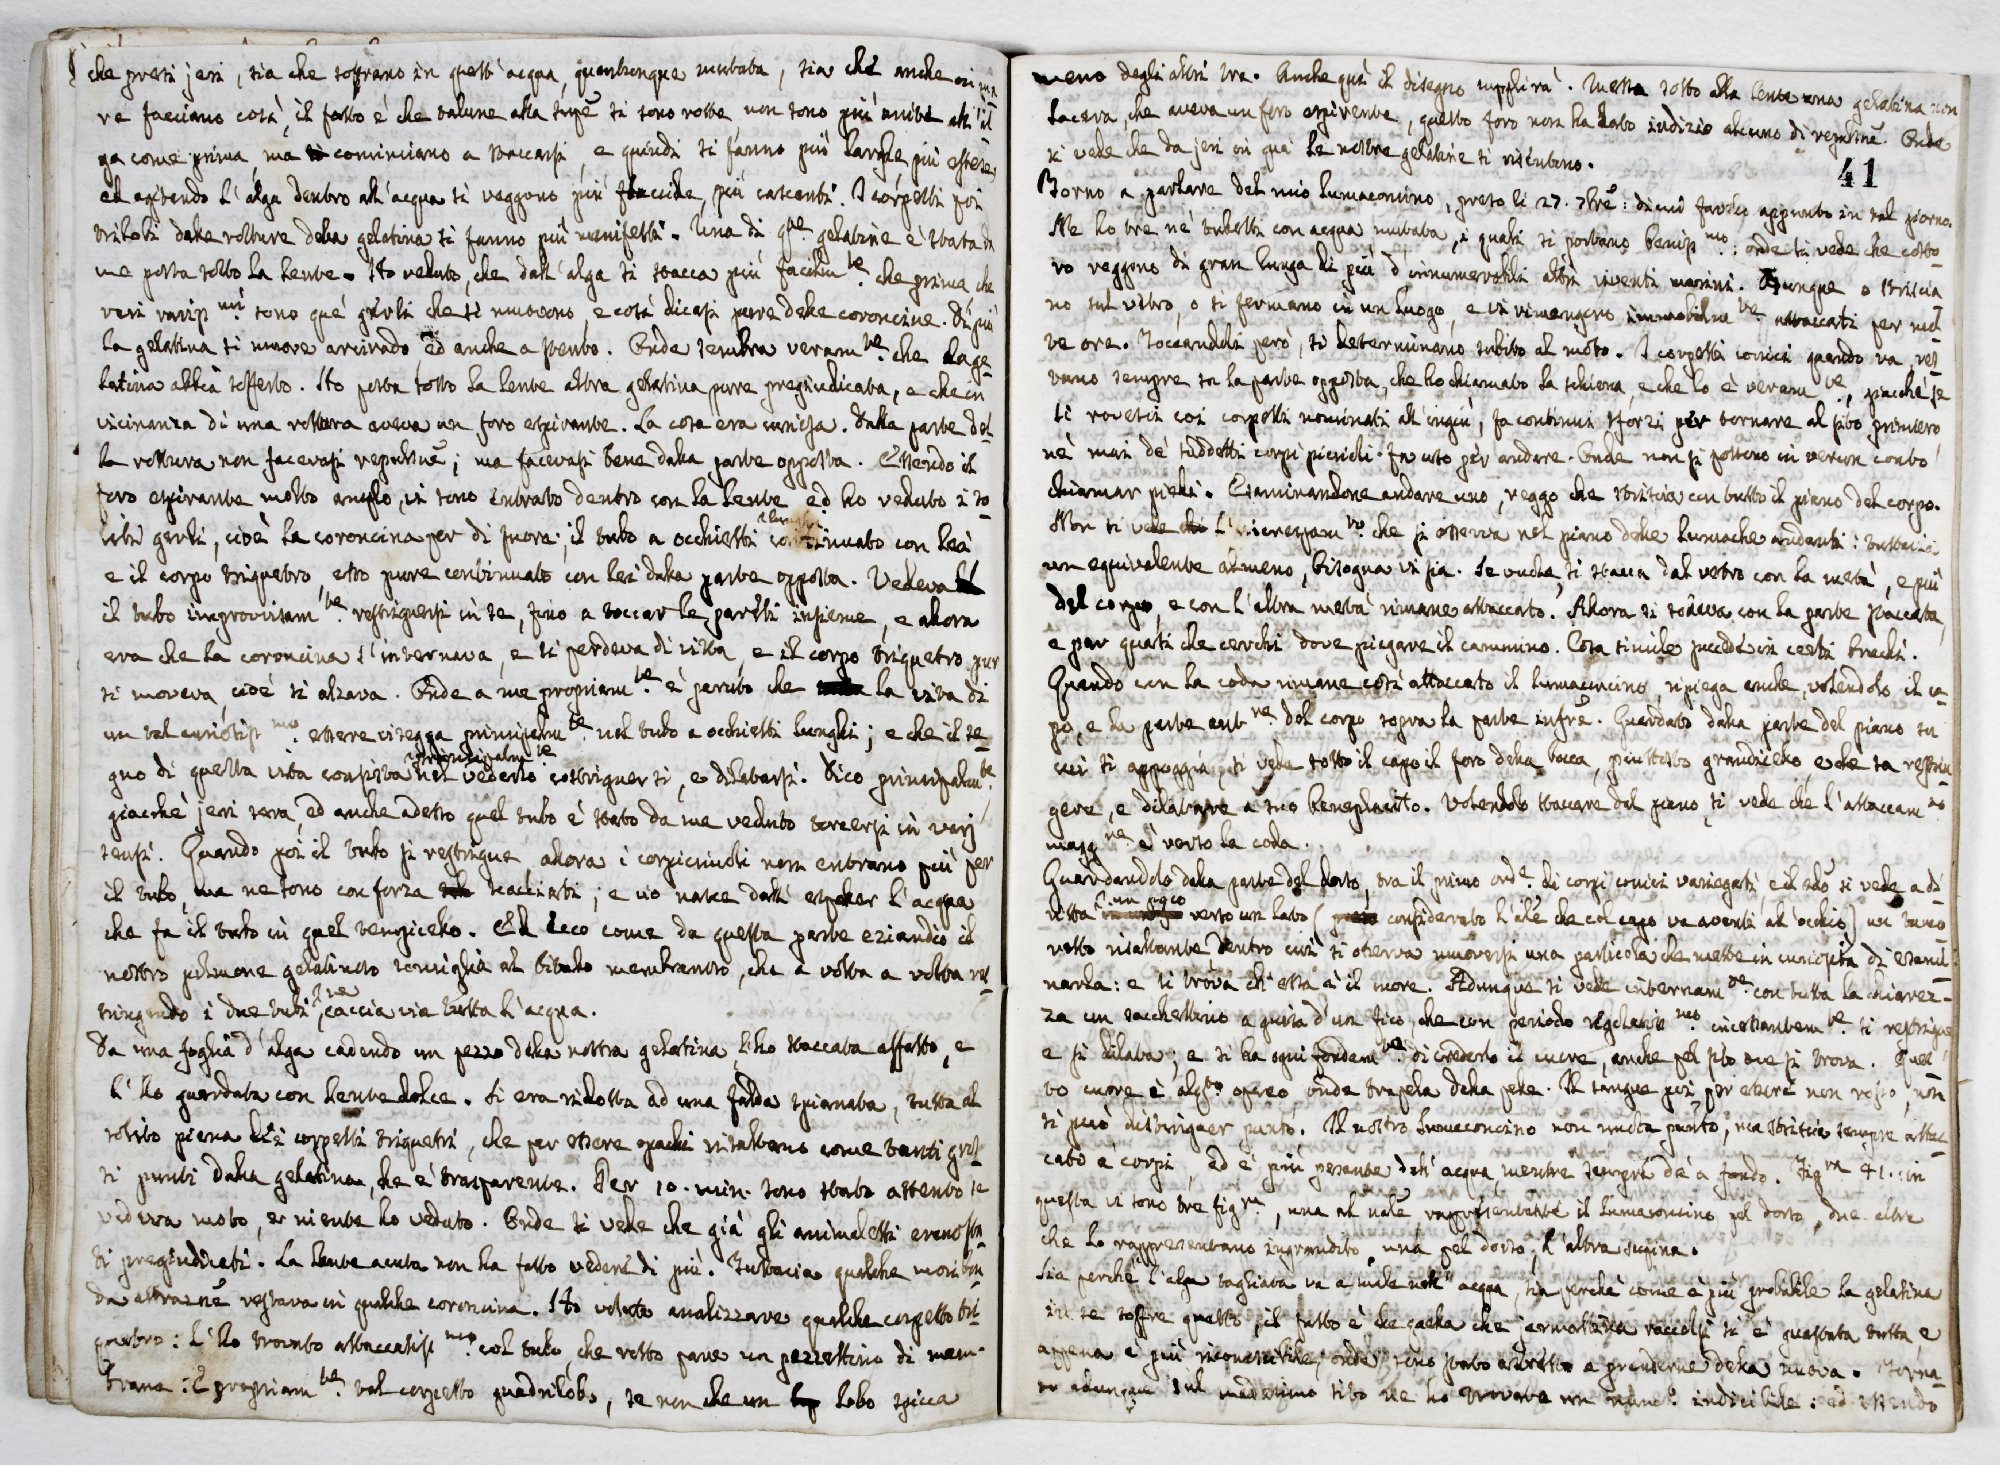 che presi jeri, sia che soffrano in quest'acqua, quantunque mutata, sia che anche in ma
re facciano così, il fatto è che talune alla supe si sono rotte non sono più unite all'al
ga come prima, ma si cominciano a staccarsi, e quindi si fanno più larghe più estese,
ed agitando l'alga dentro all'acqua si veggono più flaccide, più cascanti. I corpetti poi
trilobi dalle rotture della gelatina si fanno più manifesti. Una di qte. gelatine è stata da
me posta sotto la lente. Ho veduto, che dall'alga si stacca più facilm te. che prima che
rari rariss mi sono que' gerli che si muovono, e così dicasi pure delle coroncine. Di più
la gelatina si muove di rado ed anche a stento. Onde sembra veram te. che la ge-
latina abbia sofferto. Ho posta sotto la lente altra gelatina pure pregiudicata, e che in
vicinanza di una rottura aveva un foro espirante. La cosa era curiosa. Dalla parte del-
la rottura non facevasi repulsne; ma facevasi bene dalla parte opposta. Essendo il
foro espirante molto amplo, vi sono entrato dentro con la lente, ed ho veduto i so-
liti gerli, cioè la coroncina per di fuora, il tubo a occhietti continuato con lei
e il corpo triquetro, esso pure continuato con lei dalla parte opposta. Vedeva
il tubo improvisam te. restringersi in se, fino a toccar le pareti insieme, e allora
era che la coroncina s'internava, e si perdeva di vista, e il corpo triquetro pur
si moveva, cioè si alzava. Onde a me propriam te. è paruto che la vita di
un tal curiosiss mo. essere risegga principalm te nel tubo a occhietti lunghi; e che il se-
gno di questa vita consista principalm te nel vederlo costringersi, e dilatarsi. Dico principalm te.
giacchè jeri sera, ed anche adesso quel tubo è stato da me veduto torcersi in varj
sensi. Quando poi il tubo si restringe allora i corpicciuoli non entrano più per
il tubo, ma ne sono con forza scacciati; e ciò nasce dall'espeller l'acqua
che fa il tubo in quel tempicello. Ed ecco come da questa parte eziandio il
nostro polmone gelatinoso somiglia al bitubo membranoso, che a volta a volta res-
tringendo i due tubi, ne caccia via tutta l'acqua.
Da una foglia d'alga cadendo un pezzo della nostra gelatina, l'ho staccata affatto, e
l'ho guardata con lente dolce. Si era ridotta ad una falda spianata, tutta al
solito piena di corpetti triquetri, che per essere opachi risaltano come tanti gros
si punti dalla gelatina, che è trasparente. Per 10. min. sono stato attento se
vedeva moto, e niente ho veduto. Onde si vede che già gli animaletti erano sta-
ti pregiudicati. La lente acuta non ha fatto vedere di più. Tuttavia qualche moribon
da attrazne restava in qualche coroncina. Ho voluto analizzare qualche corpetto tri-
quetro: l'ho trovato attaccatiss mo. col tubo, che rotto pare un pezzettino di mem-
brana: è propriam te. tal corpetto quadrilobo, se non che un lobo spicca
meno degli altri tre. Anche qui il disegno supplirà. Messa sotto alla lente una gelatina non
lacera, che aveva un foro espirente, questo foro non ha dato indizio alcuno di repulsne. Onde
si vede che da jeri in qua le nostre gelatine si risentono.
41
Torno a parlare del mio lumaconcino, preso li 27. 7bre: di cui favello appunto in tal giorno.
Ne ho tre nè tubetti con acqua mutata, i quali si portano beniss mo: onde si vede che costo-
ro reggono di gran lunga di più d'innumerabili altri viventi marini. Dunque o striscia
no sul vetro, o si fermano in un luogo, e vi rimangono immobilm te. attaccati per mol-
te ore. Toccandoli però, si determinano subito al moto. I corpetti conici quando va res-
tano sempre su la parte opposta, che ho chiamato la schiena, e che lo è veram te., giacchè se
si rovesci coi corpetti nominati all'ingiù, fa continui sforzi per tornare al sito primiero
nè mai de' suddetti corpi piccioli fa uso per andare. Onde non si possono in verun conto
chiamar piedi. Esaminandone andare uno, veggo che striscia con tutto il piano del corpo.
Non si vede l'increspam to che si osserva nel piano delle lumache andanti: tuttavia
un equivalente almeno, bisogna vi sia. Se vuole, si stacca dal vetro con la metà, e più
del corpo, e con l'altra metà rimane attaccato. Allora si solleva con la parte staccata,
e par quasi che cerchi dove piegare il cammino. Cosa simile succede in certi bruchi.
Quando con la coda rimane così attaccato il lumaconcino, ripiega anche, volendolo il ca-
po, e la parte ant re. del corpo sopra la parte infre. Guardato dalla parte del piano su
cui si appoggia, si vede sotto il capo il foro della bocca, piuttosto grandicello, e che sa restrin-
gere, e dilatare a suo beneplacito. Volendolo staccare dal piano, si vede che l'attaccam to
magg re è verso la coda.
Guardandolo dalla parte del dorso, tra il primo ord e. di corpi conici variegati, e il 2do si vede a di-
ritta un poco verso un lato (considerato l'ale che col capo va avanti all'occhio) un tuco
rotto risaltante dentro cui si osserva muoversi una particola che mette in curiosità di esami-
narla: e si trova ch'essa è il cuore. Adunque si vede internam te. con tutta la chiarez-
za un sacchettino a guisa d'un fico, che con periodo regolatiss mo. incessantem te. si restringe
e si dilata; e si ha ogni fondam to. di crederlo il cuore, anche pel sito ove si trova. Ques
to cuore è alqto opaco onde trapela dalla pelle. Il sangue poi, per essere non rosso, non
si può distinguer punto. Il nostro lumaconcino non nuota punto, ma striscia sempre attac-
cato a' corpi, ed è più pesante dell'acqua, mentre sempre dà a fondo. Fig ra 41. in
questa vi sono tre fig re, una al nale rappresentante il lumaconcino pel dorso, due altre
che lo rappresentano ingrandito, una pel dorso, l'altra supina.
Sia perchè l'alga tagliata va a male nell'acqua, sia perchè come è più probabile la gelatina
in se soffre questo, il fatto è che quella che jermattina raccolsi si è guastata tutta, e
appena è più riconoscibile, onde sono stato astretto a prenderne della nuova. Torna-
to adunque sul medesimo sito ne ho trovare un num o. indicibile: ed essendo